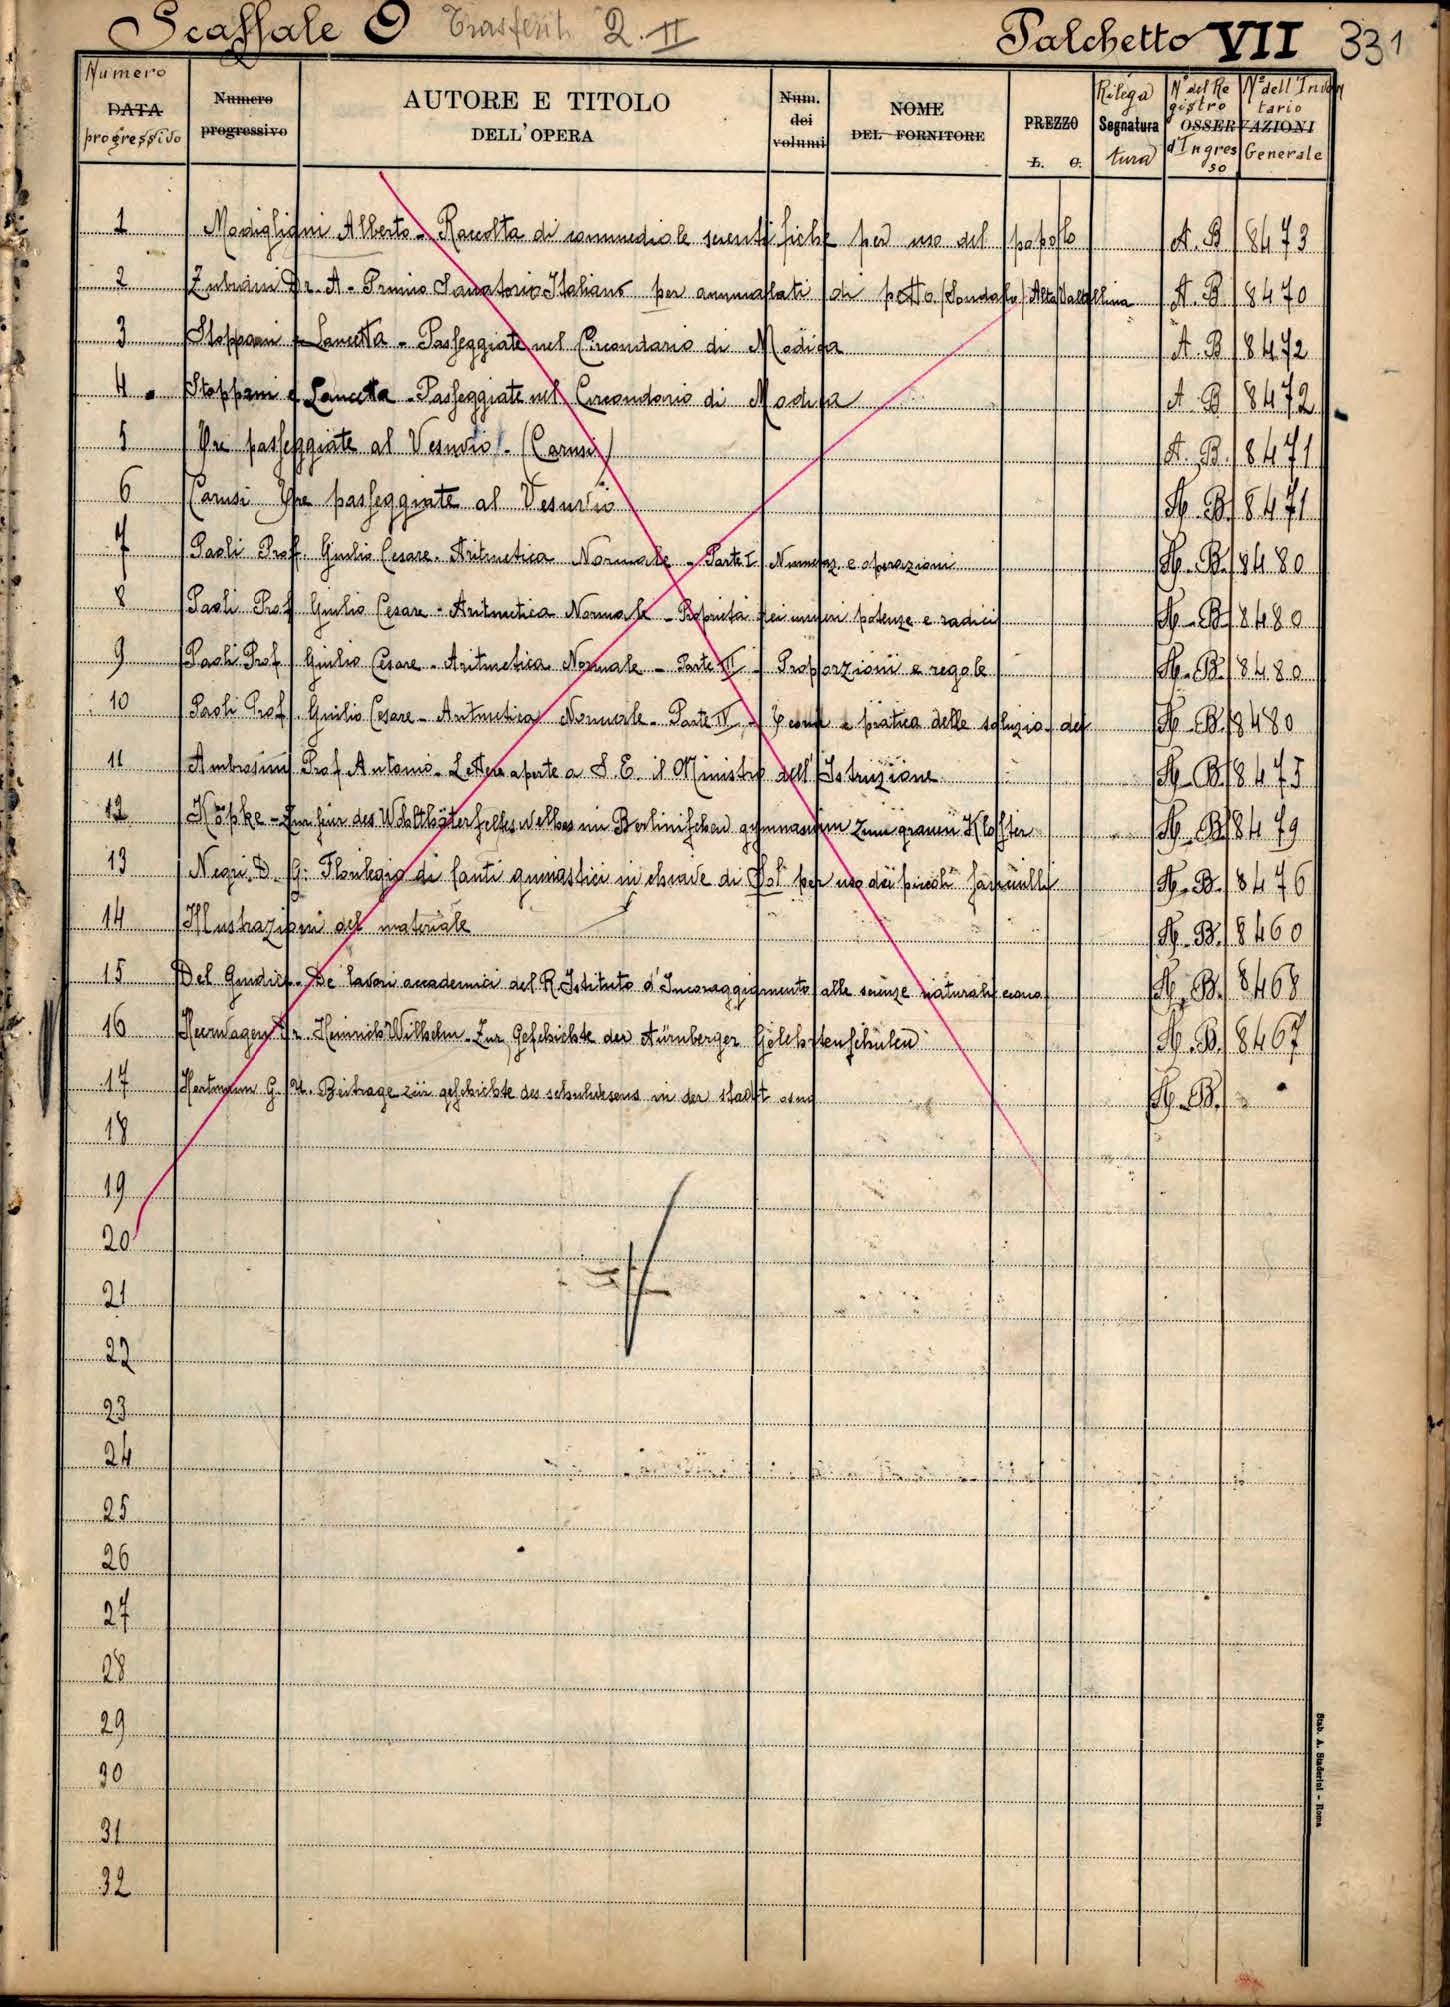 Scaffale O Trasferit. Q. II Palchetto VII 331
Numero DATA progressivo
Numero progressivo
AUTORE E TITOLO DELL'OPERA
Num. dei volumi
NOME DEL FORNITORE
PREZZO L. C.
Rilega Segnatura tura
N° del Re gistro d'Ingres so
N° dell'Inven tario Generale
OSSERVAZIONI
1 Modigliani Alberto - Raccolta di commediole scientifiche per uso del popolo A. B 8473
2 Zubiani Dr. A - Primo Sanatorio Italiano per ammalati di petto (Sondalo) Alta Valtellina A. B. 8470
3 Stoppani e Lancetta - Passeggiate nel Circondario di Modica A. B 8472
4 Stoppani e Lancetta - Passeggiate nel Circondario di Modica A B 8472
5 Tre passeggiate al Vesuvio - (Carusi) A. B. 8471
6 Carusi Tre passeggiate al Vesuvio A. B. 8471
7 Paoli Prof. Giulio Cesare - Aritmetica Normale - Parte I Numeraz. e operazioni A. B. 8480
8 Paoli Prof Giulio Cesare - Aritmetica Normale - Proprietà dei numeri potenze e radici A. B. 8480
9 Paoli Prof. Giulio Cesare - Aritmetica Normale - Parte III - Proporzioni e regole A. B. 8480
10 Paoli Prof. Giulio Cesare - Aritmetica Normale - Parte IV - Teoria e pratica delle soluzio. del A. B. 8480
11 Ambrosini Prof. Antonio - Lettera aperte a S. E. il Ministro dell'Istruzione A. B. 8475
12 Köpke - Zur feier des Wohlthäterfestes im Berlinischen gymnasium zum grauen Kloster A. B. 8479
13 Negri D. G: Florilegio di Canti ginnastici in chiave di Sol per uso dei piccoli fanciulli A. B. 8476
14 Illustrazioni del materiale A. B. 8460
15 Del Giudice - De' lavori accademici del R. Istituto d'Incoraggiamento alle scienze naturali econo. A. B. 8468
16 Heerwagen Dr. Heinrich Wilhelm - Zur Geschichte der Nürnberger Gelehrtenschulen A. B. 8467
17 Hartmann G. Beitrage zur geschichte des schulwesens in der stadt osna A. B.
18
19
20
21
22
23
24
25
26
27
28
29
30
31
32
Stab. A. Staderini - Roma